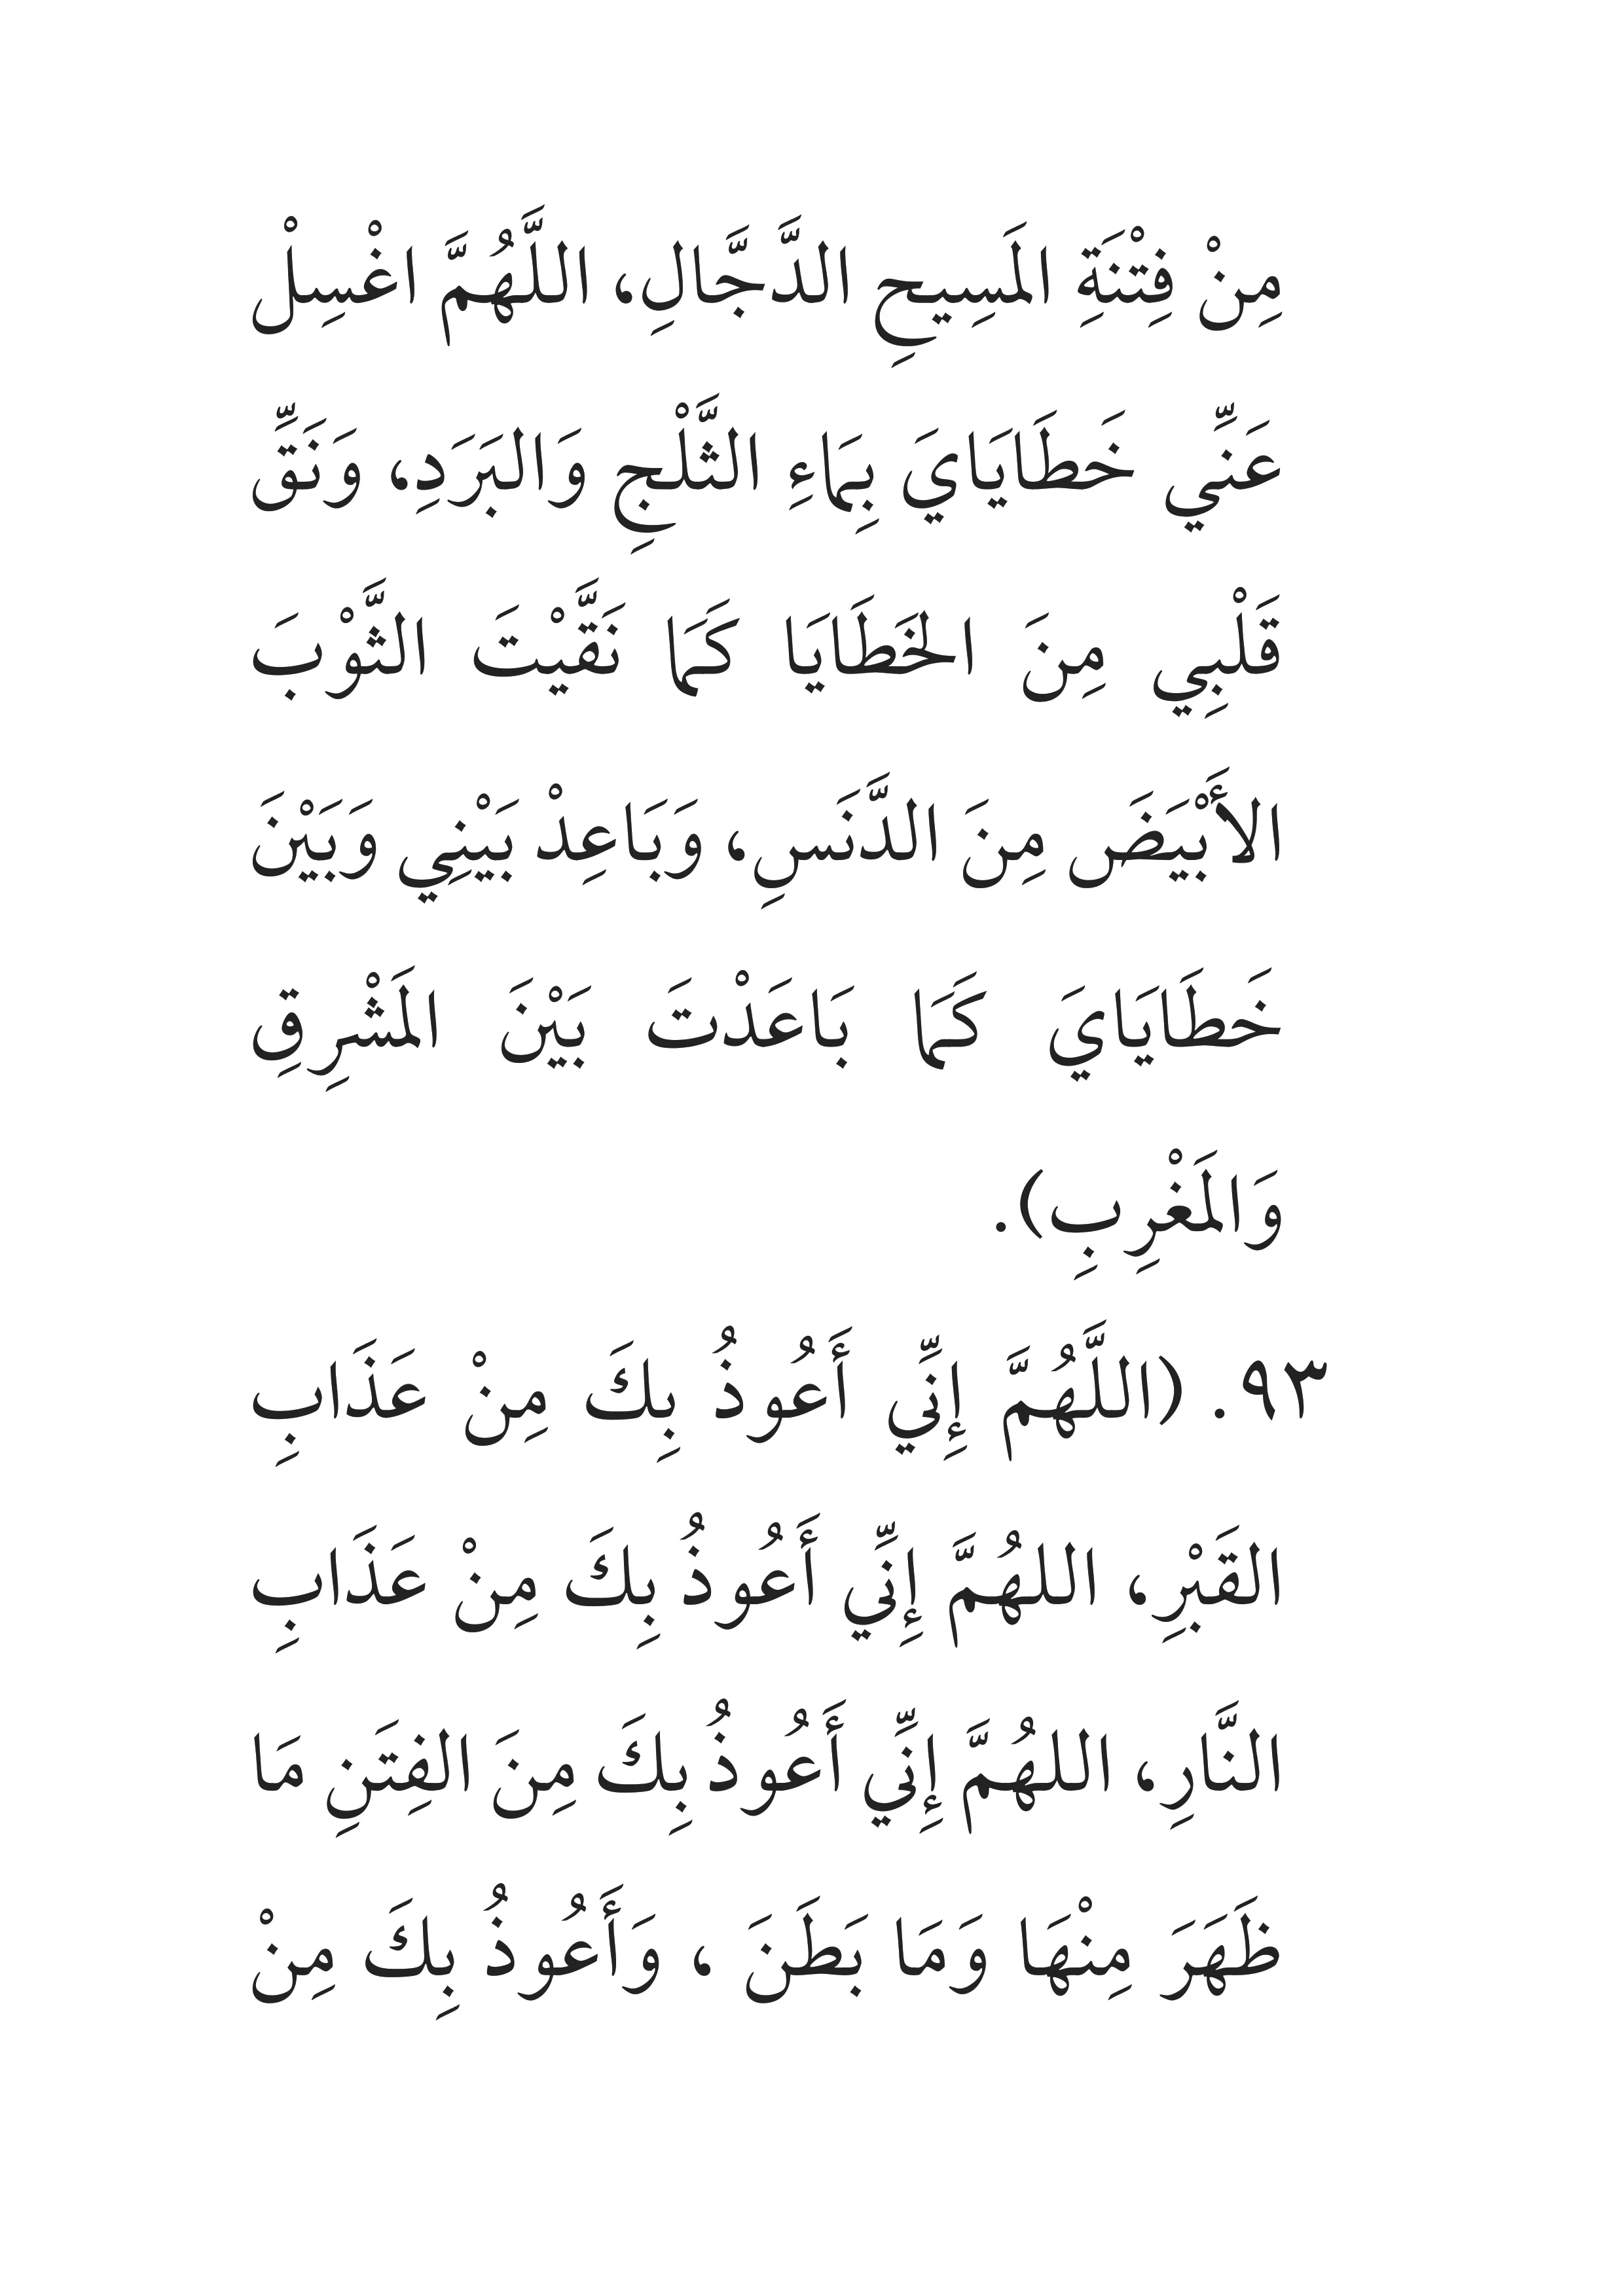 مِنْ فِتْنَةِ المَسِيحِ الدَّجَّالِ، اللَّهُمَّ اغْسِلْ
عَنِّي خَطَايَايَ بِمَاءِ الثَّلْجِ وَالبَرَدِ، وَنَقِّ
قَلْبِي مِنَ الخَطَايَا كَمَا نَقَّيْتَ الثَّوْبَ
الأَبْيَضَ مِنَ الدَّنَسِ، وَبَاعِدْ بَيْنِي وَبَيْنَ
خَطَايَايَ كَمَا بَاعَدْتَ بَيْنَ المَشْرِقِ
وَالمَغْرِبِ).
٩٣. (اللَّهُمَّ إِنِّي أَعُوذُ بِكَ مِنْ عَذَابِ
القَبْرِ، اللهُمَّ إِنِّي أَعُوذُ بِكَ مِنْ عَذَابِ
النَّارِ، اللهُمَّ إِنِّي أَعُوذُ بِكَ مِنَ الفِتَنِ مَا
ظَهَرَ مِنْهَا وَمَا بَطَنَ ، وَأَعُوذُ بِكَ مِنْ